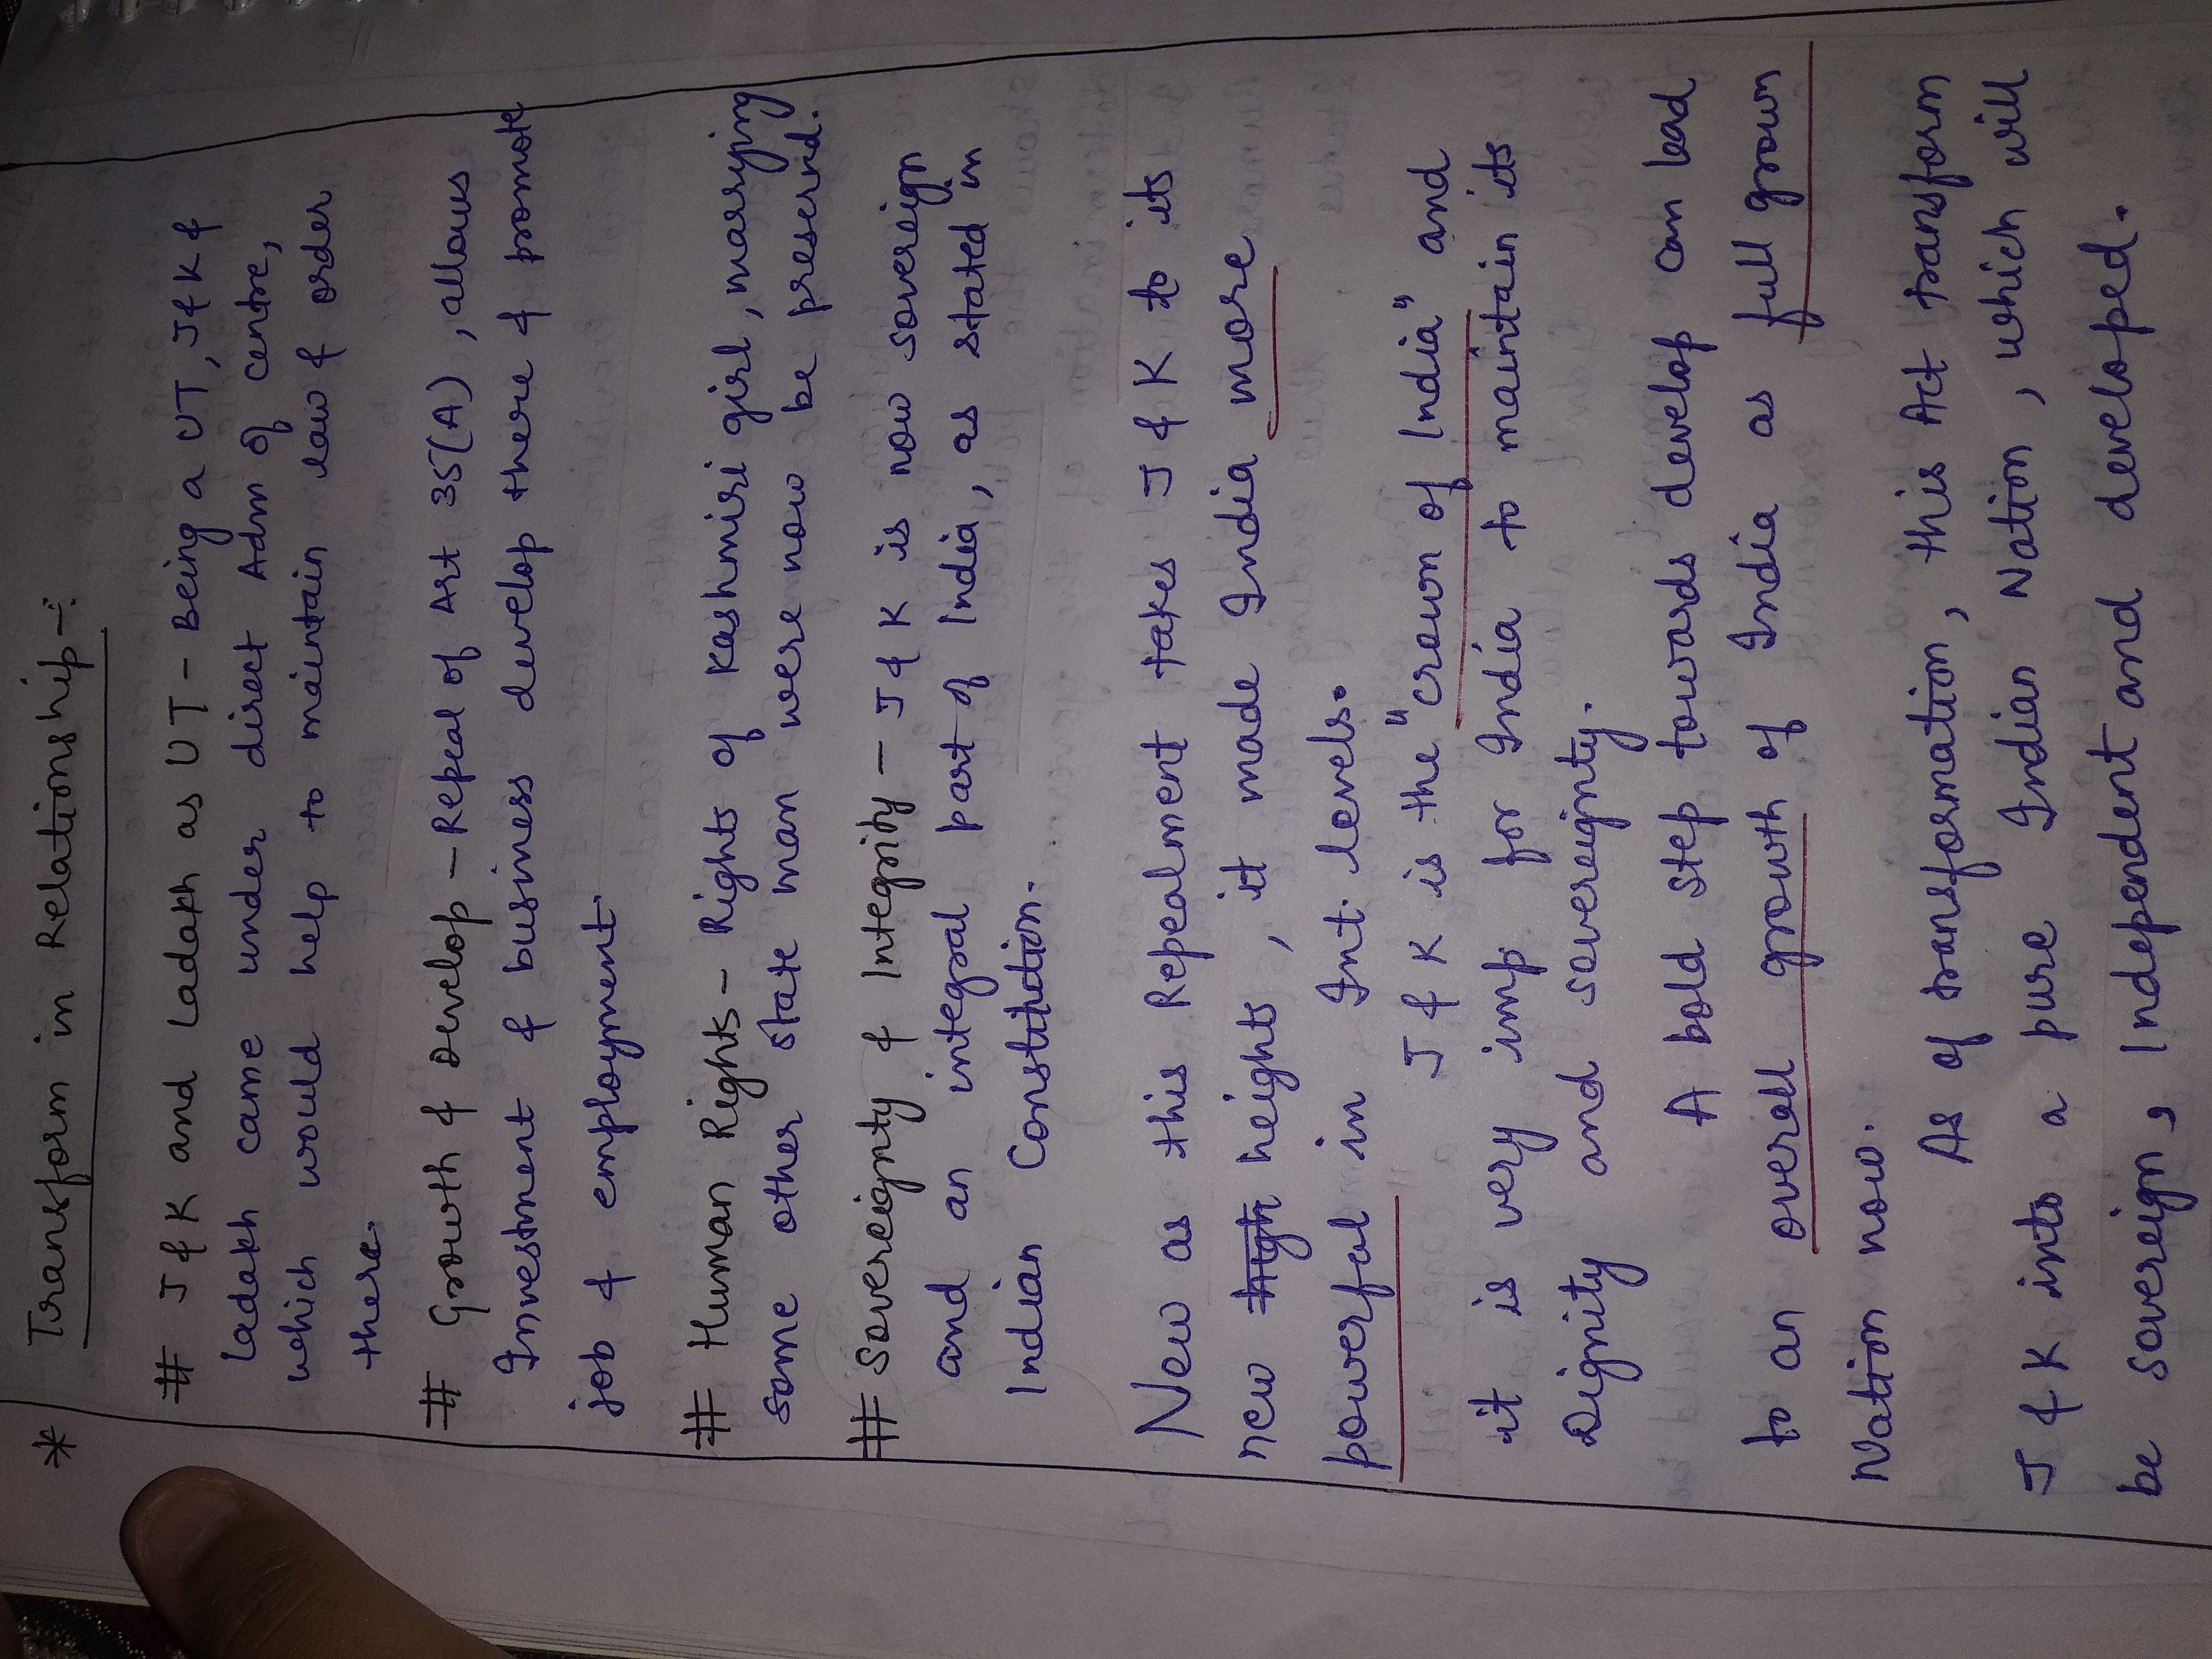 * Transform in Relationship -:
# J & K and Ladakh as UT - Being a UT, J & K &
Ladakh came under direct Adm of Centre,
which would help to maintain law & order
there.
# Growth & Develop - Repeal of Art 35(A), allows
Investment & business develop there & promote
job & employment.
# Human Rights - Rights of Kashmiri girl, marrying
some other state man were now be preserved.
# Sovereignty & Integrity - J & K is now sovereign
and an integral part of India, as stated in
Indian Constitution.
New as this Repealment takes J & K to its
new high heights, it made India more
powerful in Int. levels.
J & K is the "crown of India" and
it is very imp for India to maintain its
Dignity and sovereignty.
A bold step towards develop can lead
to an overall growth of India as full grown
Nation now.
As of transformation, this Act transform
J & K into a pure Indian Nation, which will
be sovereign, Independent and developed.